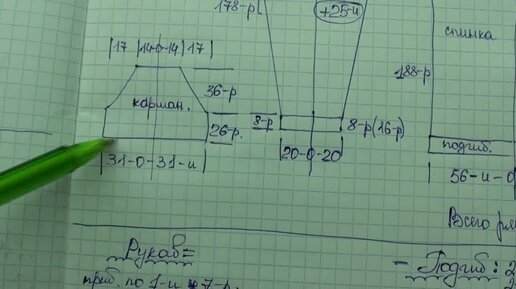 178-р
+25-и
спинка
|17|14-0-14|17|
36-р
188-р
карман.
8-р
8-р(16-р)
26-р.
подгиб.
|31-0-31-и|
|20-0-20|
56-и-0
Всего
Рукав=
- Подгиб: 2
приб. по 1-и * 7-р.